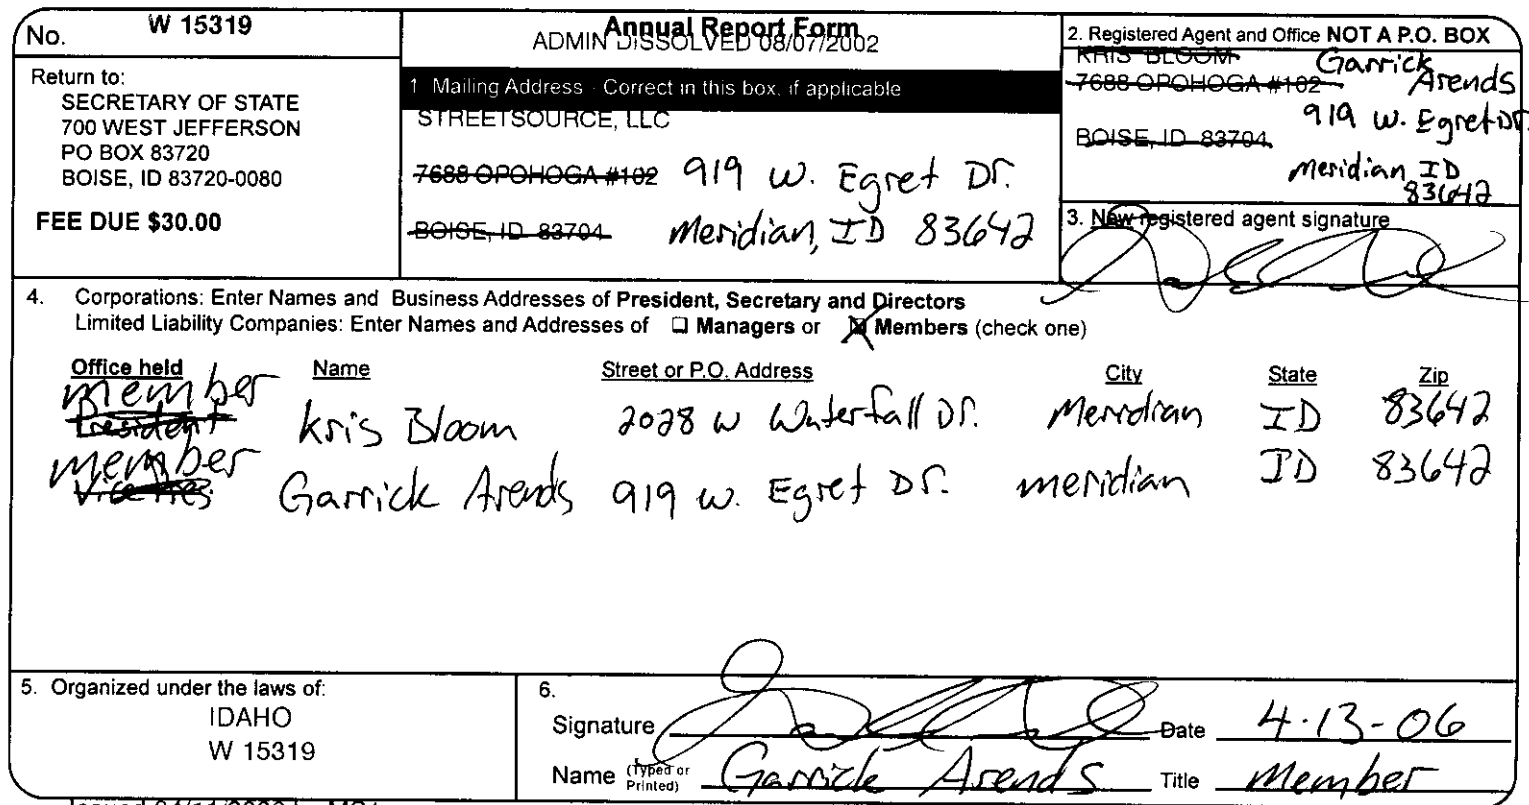 No. W 15319
Annual Report Form
ADMIN DISSOLVED 08/07/2002
Return to:
SECRETARY OF STATE
700 WEST JEFFERSON
PO BOX 83720
BOISE, ID 83720-0080
FEE DUE $30.00
1 Mailing Address - Correct in this box, if applicable
STREETSOURCE, LLC
7688 OPOHOGA #102 919 W. Egret Dr.
BOISE, ID 83704 Meridian, ID 83642
2. Registered Agent and Office NOT A P.O. BOX
KRIS BLOOM Garrick
7688 OPOHOGA #102 Arends
919 W. Egret Dr.
BOISE, ID 83704
Meridian, ID
83642
3. New registered agent signature
4. Corporations: Enter Names and Business Addresses of President, Secretary and Directors
Limited Liability Companies: Enter Names and Addresses of Managers or Members (check one)
Office held Name Street or P.O. Address City State Zip
member
President Kris Bloom 2028 W Waterfall Dr. Meridian ID 83642
member
Vice Pres Garrick Arends 919 W. Egret Dr. meridian ID 83642
5. Organized under the laws of:
IDAHO
W 15319
6.
Signature Date 4-13-06
Name (Typed or Printed) Garrick Arends Title Member